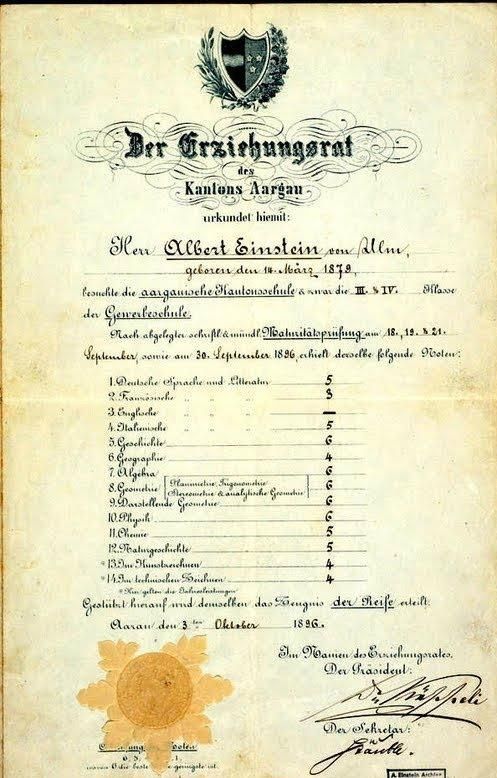 Der Erziehungsrat
des
Kantons Aargau
urkundet hiemit:
Herr Albert Einstein von Ulm,
geboren den 14. März 1879,
besuchte die aargauische Kantonsschule & zwar die III. & IV. Klasse
der Gewerbeschule.
Nach abgelegter schriftl. & mündl. Maturitätsprüfung am 18., 19. & 21.
September, sowie am 30. September 1896, erhielt derselbe folgende Noten:
1. Deutsche Sprache und Litteratur 5
2. Französische „ „ „ 3
3. Englische „ „ „ —
4. Italienische „ „ „ 5
5. Geschichte 6
6. Geographie 4
7. Algebra 6
8. Geometrie [Planimetrie, Trigonometrie 6
Stereometrie & analytische Geometrie] 6
9. Darstellende Geometrie 6
10. Physik 6
11. Chemie 5
12. Naturgeschichte 5
*13. Im Kunstzeichnen 4
*14. Im technischen Zeichnen 4
*Hier gelten die Jahresleistungen
Gestützt hierauf wird demselben das Zeugnis der Reife erteilt.
Aarau den 3ten Oktober 1896.
Im Namen des Erziehungsrates,
Der Präsident:
Der Sekretär:
Noten
6
1
die beste geringste ist.
A. Einstein Archive